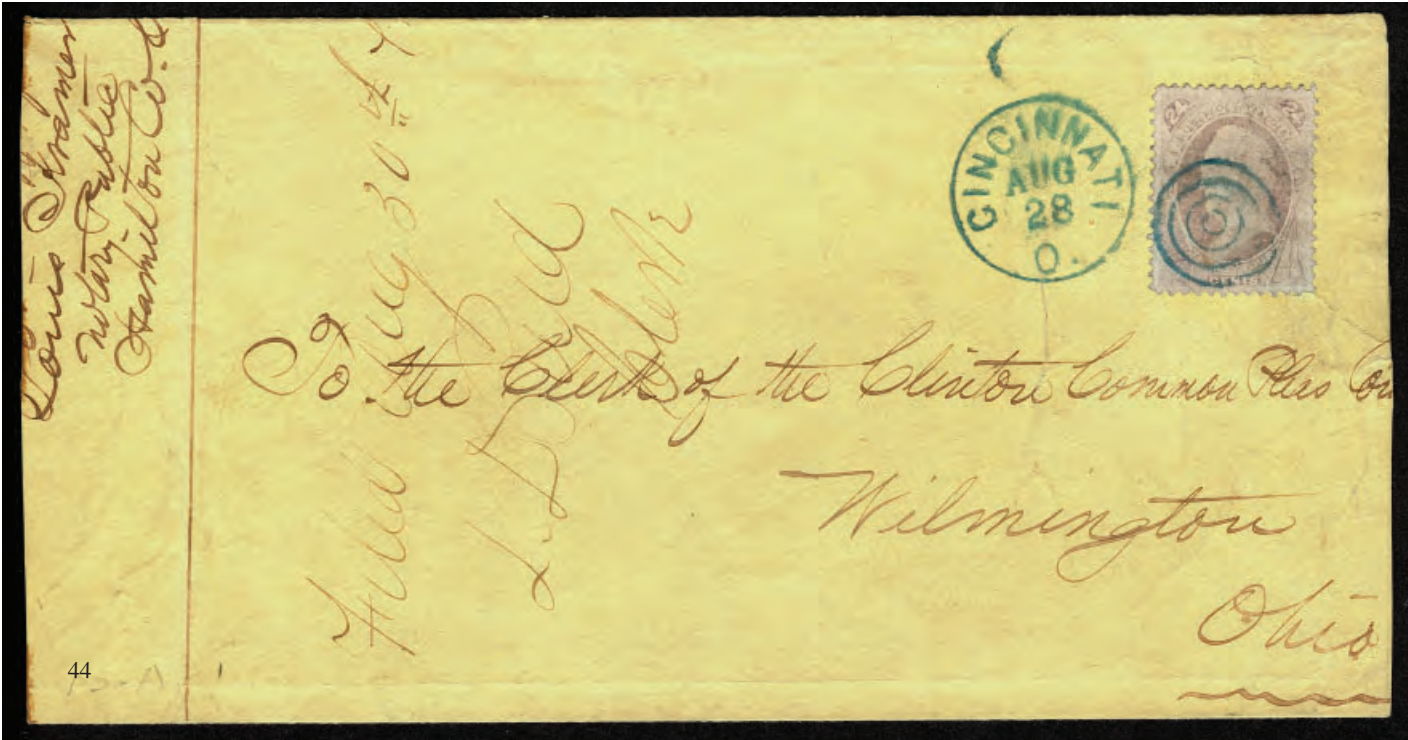 Louis Kramer
Notary Public
Hamilton Co. O
Filed Aug 30th 7
L. D.
Clerk
CINCINNATI
AUG
28
O.
24 24
To the Clerk of the Clinton Common Pleas Cou
Wilmington
Ohio
44